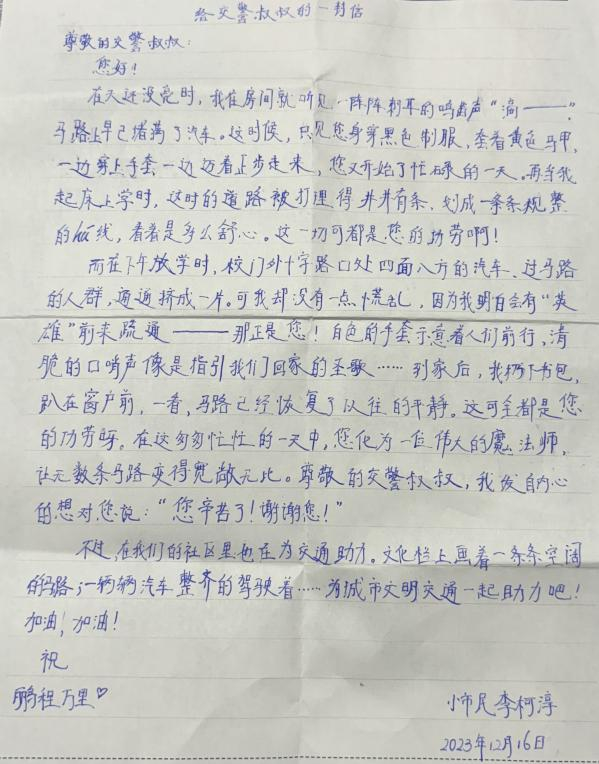 给交警叔叔的一封信
尊敬的交警叔叔：
您好！
在天还没亮时，我在房间就听见一阵阵刺耳的鸣笛声“滴——”。
马路上早已堵满了汽车。这时候，只见您身穿黑色制服，套着黄色马甲，
一边穿上手套一边迈着正步走来，您又开始了忙碌的一天。再当我
起床上学时，这时的道路被打理得井井有条、划成一条条规整
的hú线，看着是多么舒心。这一切可都是您的功劳啊！
而在下午放学时，校门外十字路口处四面八方的汽车、过马路
的人群，通通挤成一片。可我却没有一点慌乱，因为我明白会有“英
雄”前来疏通——那正是您！白色的手套示意着人们前行，清
脆的口哨声像是指引我们回家的圣歌……到家后，我扔下书包，
趴在窗户前，一看，马路已经恢复了以往的平静。这可全都是您
的功劳呀。在这匆匆忙忙的一天中，您化为一位伟大的魔法师，
让无数条马路变得宽敞无比。尊敬的交警叔叔，我发自内心
的想对您说：“您辛苦了！谢谢您！”
不过，在我们的社区里也在为交通助力。文化栏上画着一条条空阔
的马路；一辆辆汽车整齐的驾驶着……为城市文明交通一起助力吧！
加油！加油！
祝
鹏程万里♡
小市民李柯淳
2023年12月16日